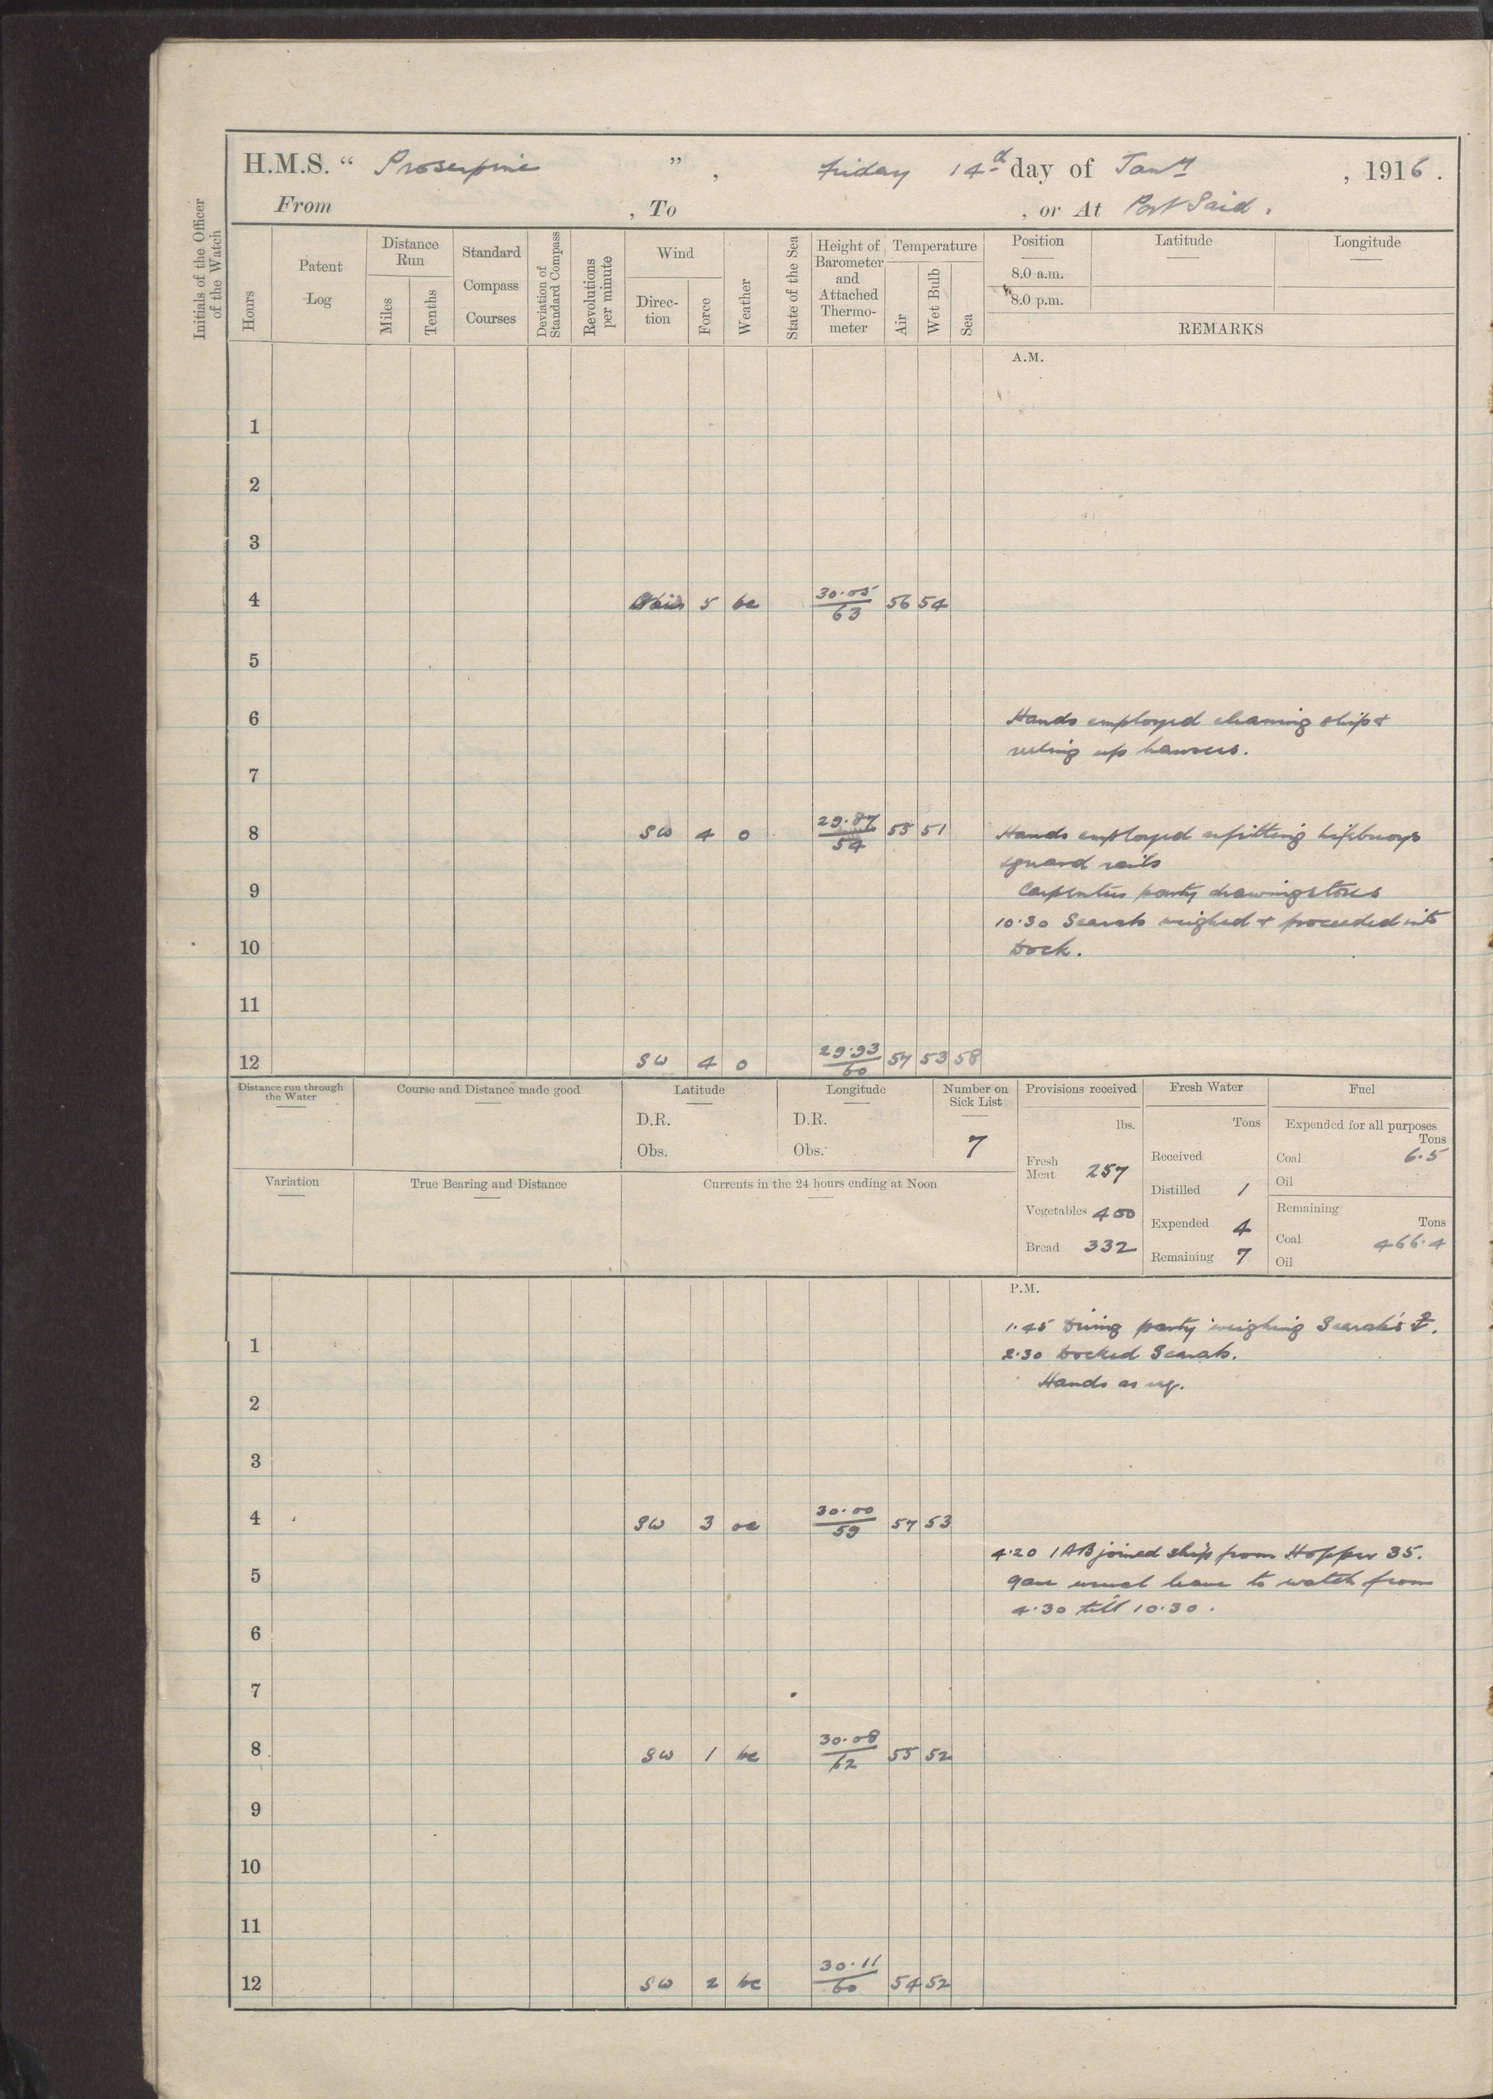 H.M.S. “ Proserpine ”, Friday 14th day of Jany, 1916.
From , To , or At Port Said.
Initials of the Officer of the Watch
Hours
Patent Log
Distance Run
Miles
Tenths
Standard Compass Courses
Deviation of Standard Compass
Revolutions per minute
Wind
Direc-tion
Force
Weather
State of the Sea
Height of Barometer and Attached Thermo-meter
Temperature
Air
Wet Bulb
Sea
Position Latitude Longitude
8.0 a.m.
8.0 p.m.
REMARKS
A.M.
1
2
3
4 5 bc 30.05/63 56 54
5
6 Hands employed cleaning ship &
reeling up hawsers.
7
8 SW 4 o 29.87/54 55 51 Hands employed refitting lifebuoys
& guard rails
9 Carpenters party drawing stores
10.30 Scarab weighed & proceeded into
10 Dock.
11
12 SW 4 o 29.93/60 57 53 58
Distance run through the Water
Course and Distance made good
Latitude
D.R.
Obs.
Longitude
D.R.
Obs.
Number on Sick List
7
Provisions received
lbs.
Fresh Meat 257
Vegetables 400
Bread 332
Fresh Water
Tons
Received
Distilled 1
Expended 4
Remaining 7
Fuel
Expended for all purposes
Tons
Coal 6.5
Oil
Remaining
Tons
Coal 466.4
Oil
Variation
True Bearing and Distance
Currents in the 24 hours ending at Noon
P.M.
1.45 Diving party weighing Scarab's ⚓.
1
2.30 Docked Scarab.
Hands as req.
2
3
4 SW 3 oc 30.00/59 57 53
4.20 1 AB joined ship from Hopper 35.
5 Gave usual leave to watch from
4.30 till 10.30.
6
7
8 SW 1 bc 30.08/62 55 52
9
10
11
12 SW 2 bc 30.11/60 54 52